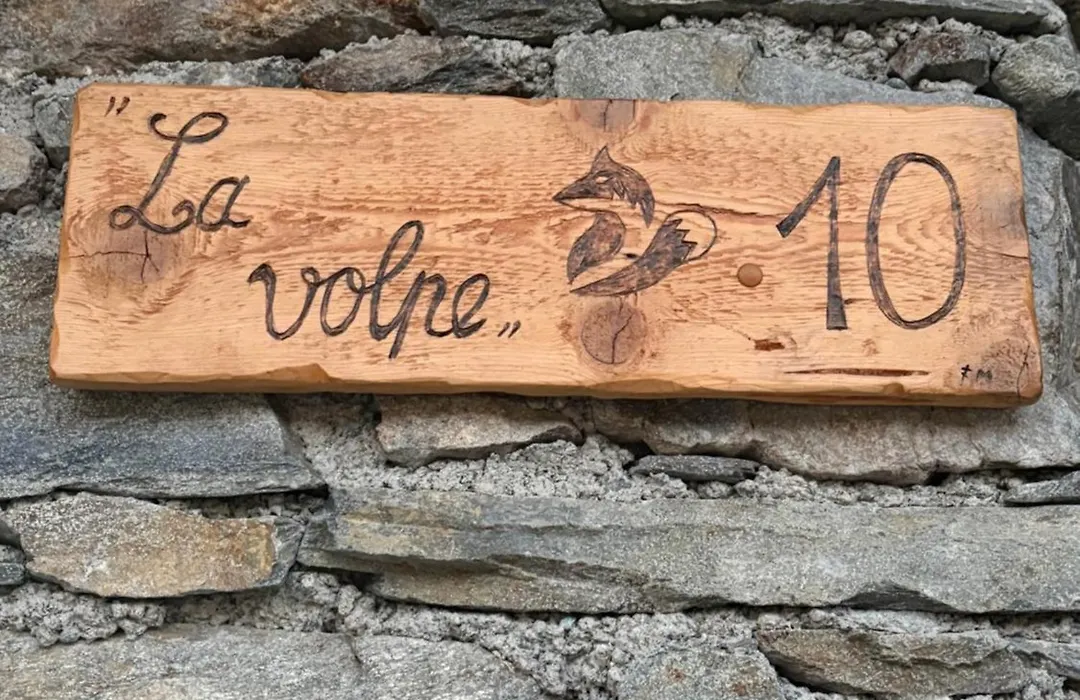 "La
volpe" 10